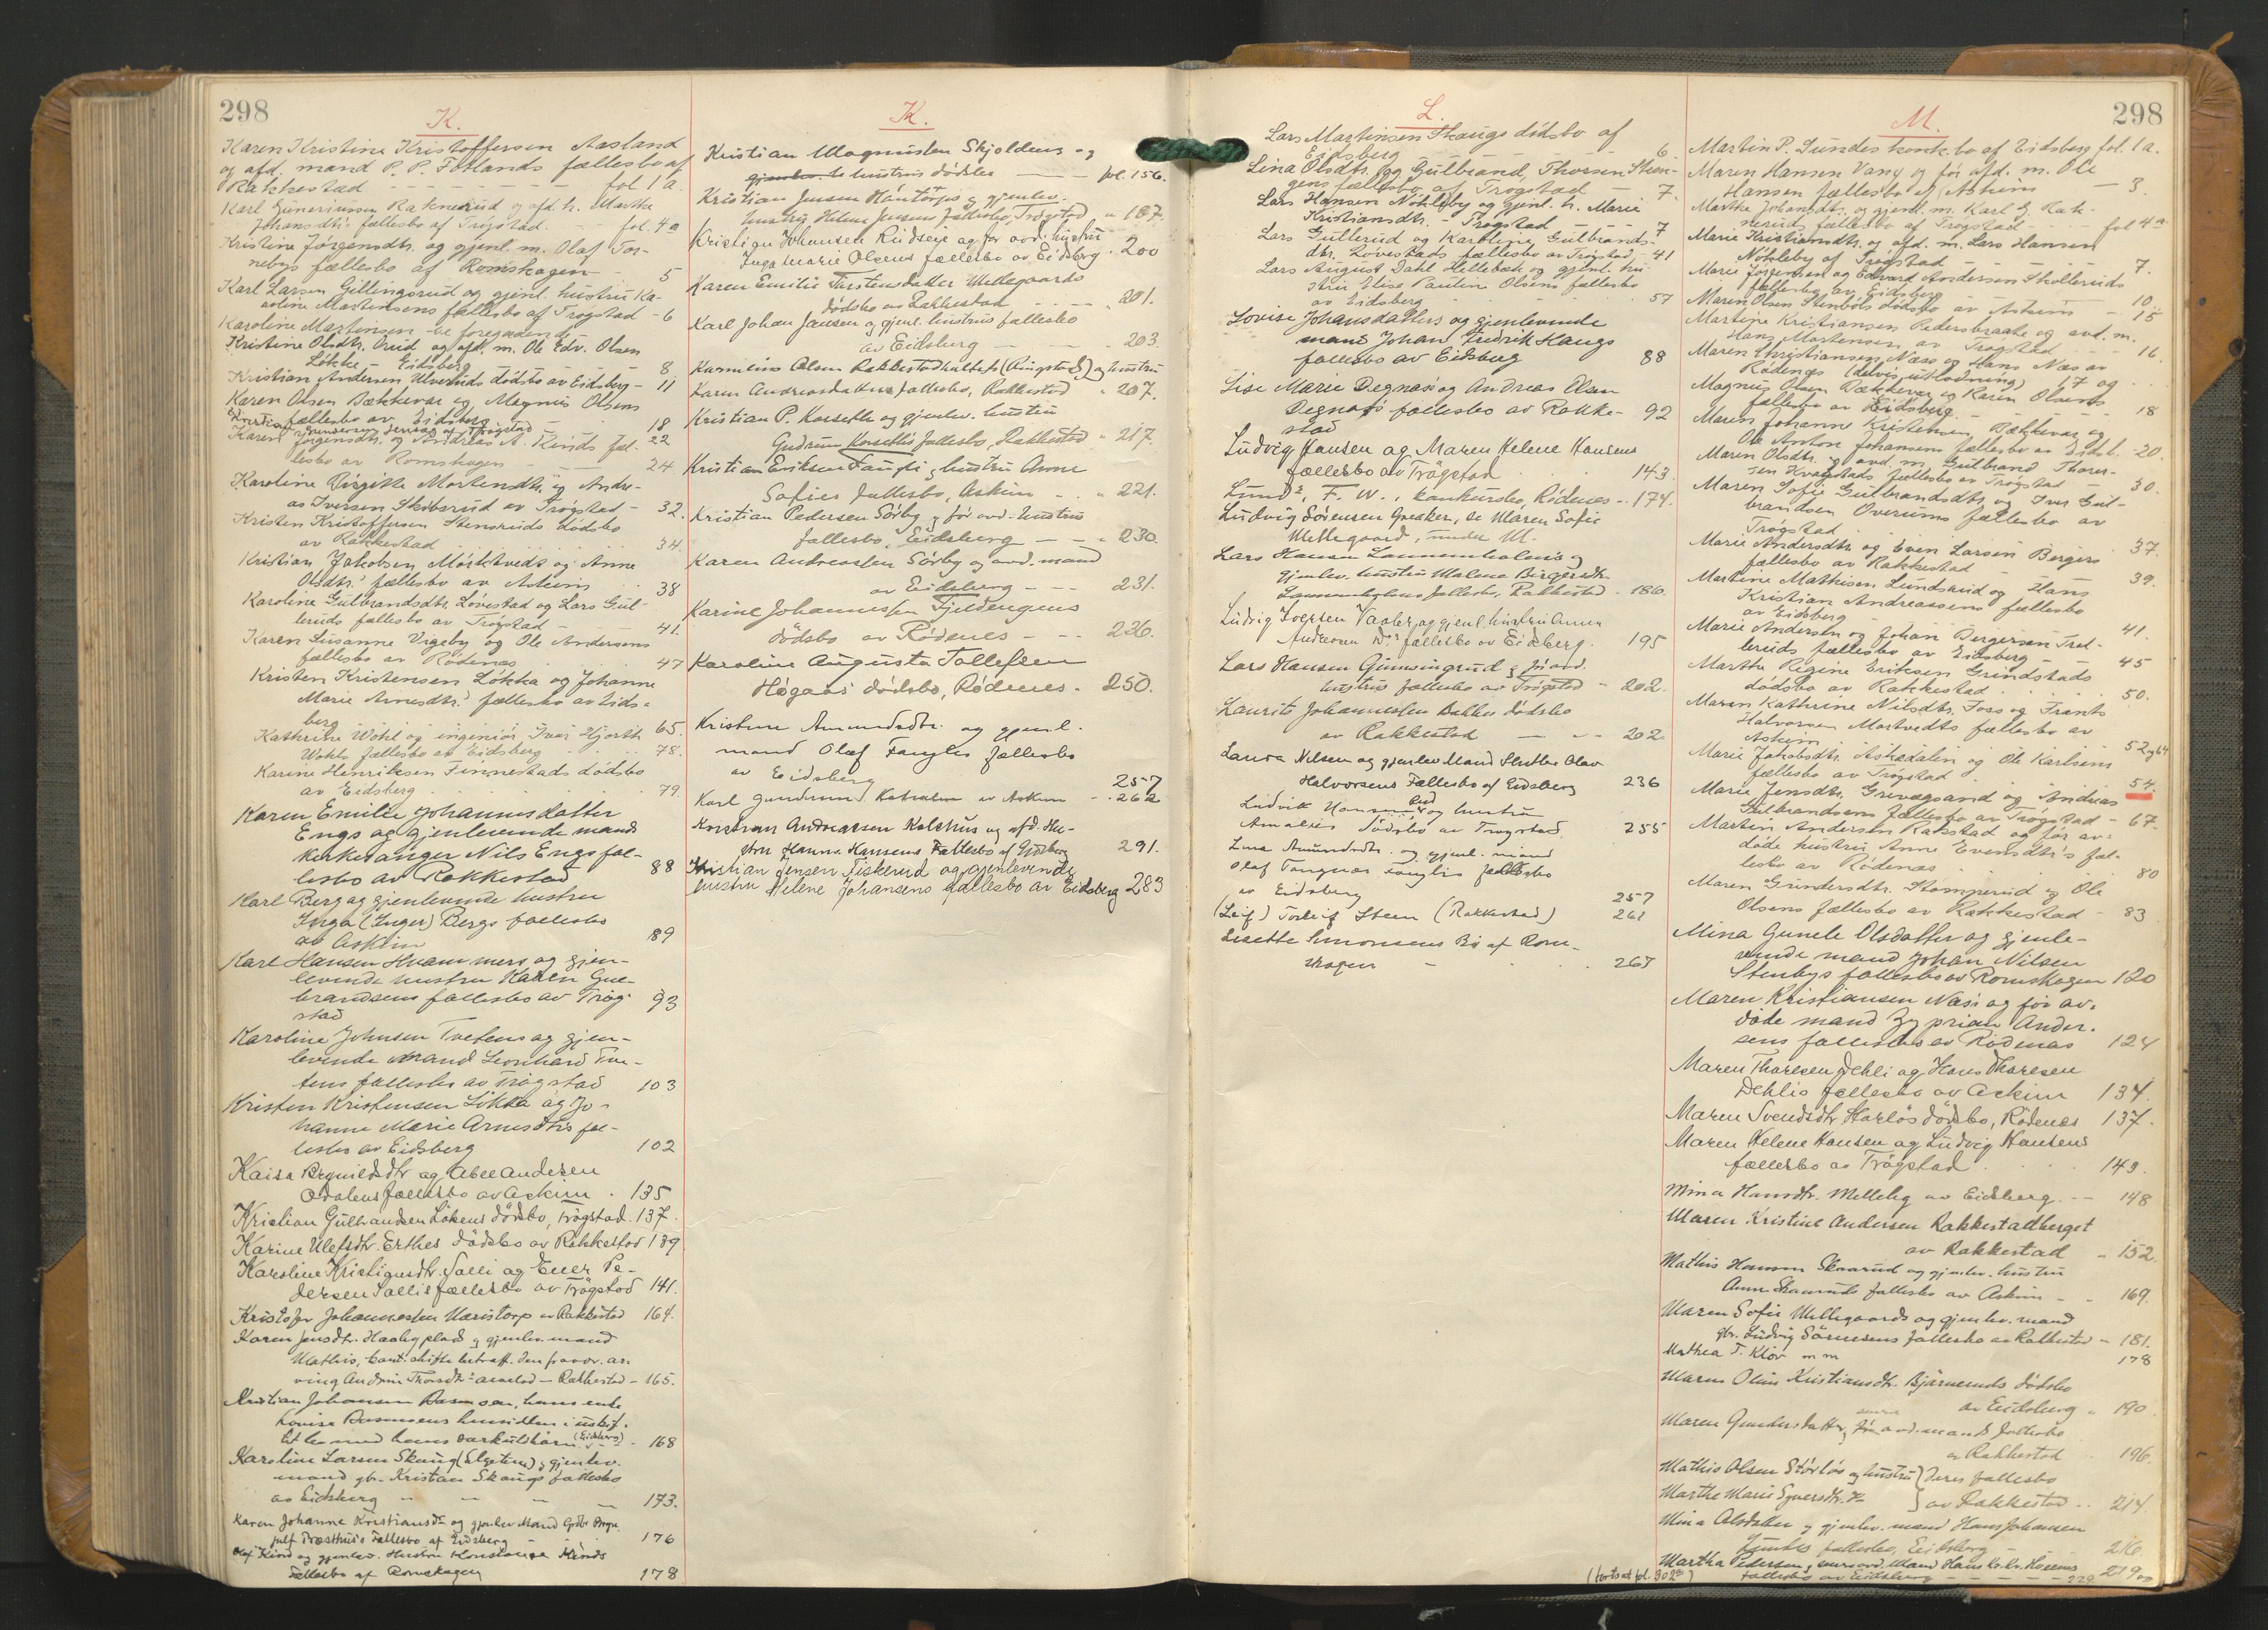 298
K.
Karen Kristine Kristoffersen Aasland
og afd. mand P. P. Fotlands fællesbo af
Rakkestad - - - - - - - fol 1 a.
Karl Guneriussen Raknerud og afd. h. Marthe
Johansdts. fællesbo af Trøgstad. - - fol. 4 a
Kristine Jørgensdtr. og gjenl. m. Olaf Tor-
nebys fællesbo af Romskogen - 5
Karl Larsen Gillingsrud og gjenl. hustru Ka-
roline Martinsens fællesbo af Trøgstad - 6
Karoline Martinsen - se foregaaende.
Kristine Olsdtr. Orud og afd. m. Ole Edv. Olsen
Løkke - Eidsberg 8
Kristian Andersen Ulveruds dødsbo av Eidsberg - 11
Karen Olsen Bækkevar og Magnus Olsens
fællesbo av Eidsberg - 18
Trøgstad 22
Karen Jørgensdtr. og Andreas A. Kinds fæl-
lesbo av Romskogen - 24
Karoline Birgitte Mortensdtr. og Andre-
as Iversen Skobsrud av Trøgstad - 32.
Kristen Kristoffersen Stensruds dødsbo
av Rakkestad 34.
Kristian Jakobsen Mørktveds og Anne
Olsdtrs. fællesbo av Askim 38
Karoline Gulbrandsdtr. Løvestad og Lars Gul-
leruds fællesbo av Trøgstad - 41.
Karen Susanne Vigeby og Ole Andersens
fællesbo av Rødenæs 47
Kristen Kristensen Løkka og Johanne
Marie Arnesdtrs. fællesbo av Eids-
berg 65.
Kathrine Wohl og ingeniør Ivar Hjorth
Wohls fællesbo av Eidsberg 78.
Karine Henriksen Finnestads dødsbo
av Eidsberg 79.
Karen Emilie Johannesdatter
Engs og gjenlevende mand
kirkesanger Nils Engs fæl-
lesbo av Rakkestad 88
Karl Berg og gjenlevende hustru
Inga (Inger) Bergs fællesbo
av Askim 89
Karl Hansen Hvammers og gjen-
levende hustru Karen Gul-
brandsens fællesbo av Trøg-
stad 93
Karoline Johnsen Tvetens og gjen-
levende mand Leonhard Tve-
tens fællesbo av Trøgstad 103
Kristen Kristensen Løkka og Jo-
hanne Marie Arnesdtrs fæl-
lesbo av Eidsberg 102
Kaisa Brynildsdtr og Abel Andersen
Odalens fællesbo av Askim . 135
Kristian Gulbrandsen Løkens dødsbo, Trøgstad. 137.
Karine Ulefsdtr. Erthes dødsbo av Rakkestad 139
Karoline Kristiansdtr. Salli og Peder Pe-
dersen Sallis fællesbo av Trøgstad 141.
Kristofer Johannessen Haristorp av Rakkestad 164.
Karen Jensdtr. Haabyplads og gjenlev. mand
Mathis, cont. skifte betræff. den fravær. ar-
ving Andrine Thorsdtrs. - Rakkestad - 165.
Kristian Johansen Basmoen, hans enke
Lovise Basmoens hensidden i uskif-
tet bo med hans særkuldsbarn (Eidsberg) - 168
Karoline Larsen Skaug (Elgetun) og gjenlev.
mand gbr. Kristian Skaugs fællesbo
av Eidsberg 173.
Karen Johanne Kristiansdr og gjenlev Mand Gbr Bryn-
julf Præsthus's Fællesbo af Eidsberg - 176
Olaf Kind og gjenlev. Hustru Konstanse Kinds
Fællesbo af Romskogen 178
K.
Kristian Magnussen Skjoldens og
hustrus dødsbo - - fol. 156.
Kristian Jensen Hantorps og gjenlev.
hustru Helene Jensens fællesbo, Trøgstad " 187.
Kristian Johansen Rudseie og før avd. hustru
Inga Marie Olsens fællesbo av Eidsberg . 200
Karen Emilie Torstensdatter Mellegaards
dødsbo av Rakkestad - - - 201.
Karl Johan Jansen og gjenl. hustrus fællesbo
av Eidsberg - - - 203.
Karen Andreasdatters fællesbo, Rakkestad " 207.
Kristian P. Korseth og gjenlev. hustru
Gudrun Korseths fællesbo, Rakkestad " 217.
Kristian Eriksen Faugli og hustru Anne
Sofies fællesbo, Askim - . " 221.
Kristian Pedersen Sørby og før avd. hustrus
fællesbo, Eidsberg - - - 230.
Karen Andreassen Sørby og avd. mand
av Eidsberg - - - 231.
Karine Johannessen Fjeldengens
dødsbo av Rødenes - - . 236.
Karoline Augusta Tollefsen
Høgaas dødsbo, Rødenes - 250.
Kristine Amundsdtr. og gjenl.
mand Olaf Fanglis fællesbo
av Eidsberg 257
Karl Gundersen av Askim - . 262
Kristian Andreassen Kolshus og afd. Hu-
stru Hanna Hansens Fællesbo af Eidsberg 291.
Kristian Jensen Fiskerud og gjenlevende
hustru Helene Johansens fællesbo av Eidsberg 283
L.
Lars Martinsen Skaugs dødsbo af
Eidsberg 6.
Lina Olsdtr. og Gulbrand Thorsen Steen-
gens fællesbo af Trøgstad - 7.
Lars Hansen Nøhleby og gjenl. h. Marie
Kristiansdtr. - Trøgstad - - 7
Lars Gullerud og Karoline Gulbrands-
dtr. Løvestads fællesbo av Trøgstad - 41
Lars August Dahl Hellebæk og gjenl. hu-
stru Elise Pauline Olsens fællesbo
av Eidsberg 57
Lovise Johansdatters og gjenlevende
mand Johan Fredrik Haugs
fællesbo av Eidsberg 88
Lise Marie Degnæs og Andreas Olsen
Degnæs fællesbo av Rakke- 92
stad
Ludvig Hansen og Maren Helene Hansens
fællesbo av Trøgstad 143.
Lunds, F. W., konkursbo, Rødenes - . 174.
Ludvig Sørensen Greaker, se Maren Sofie
Mellegaard, under M.
Lars Hansen Lammenholens og
gjenlev. hustru Malene Birgersdtr.
fællesbo, Rakkestad - 186.
Ludvig Iversen Vaaler og gjenl. hustru Anna
Andersen Ds. fællesbo av Eidsberg. 195
Lars Hansen Gunnengrud og før avd.
hustrus fællesbo av Trøgstad - 202.
Laurits Johannessen Bakkes dødsbo
av Rakkestad - - - 202.
Laura Nilsen og gjenlev Mand Skrædder Olav
Halvorsens Fællesbo af Eidsberg 236
Ludvik Hansen og hustru
Amalies dødsbo av Trøgstad 255
Lina Amundsdtr. og gjenl. mand
Olaf Tangnæs Fanglis fællesbo
av Eidsberg 257
(Leif) Torleif Steen (Rakkestad) 261
Lisette Simonsens Bo af Rom-
skogen - 267
298
M.
Martin P. Sundes konk. bo af Eidsberg fol. 1 a.
Maren Hansen Vang og før afd. m. Ole
Hansen fællesbo af Askim - 3.
Marthe Johansdtr. og gjenl. m. Karl G. Rak-
neruds fællesbo af Trøgstad - - fol 4 a
Marie Kristiansdtr. og afd. m. Lars Hansen
Nøhleby af Trøgstad - 7.
Marie Jørgensen og Edvard Andersen Skolleruds
fællesbo av Eidsberg 10.
Maren Olsen Stenbøls dødsbo av Askim - 15
Martine Kristiansen Pedersbraate og avd. m.
Hans Mortensen av Trøgstad 16.
Maren Christiansen Næss og Hans Næs av
Rødenæs (delvis utlodning) 17 og
Magnus Olsen Bækkevar og Karen Olsens
fællesbo av Eidsberg. - 18
Maren Johanne Kristensen Bækkevar og
Ole Anton Johansens fællesbo av Eidsb. 20.
Maren Olsdtr. og avd. m. Gulbrand Thorer-
sen Kvagstads fællesbo av Trøgstad - 30.
Maren Sofie Gulbrandsdtr. og Iver Gul-
brandsen Overums fællesbo av
Trøgstad 37.
Marie Andersdtr. og Even Larsen Bergers
fællesbo av Rakkestad - 39.
Martine Mathisen Lundsrud og Hans
Kristian Andreassens fællesbo
av Eidsberg 41.
Marie Andersen og Johan Bergersen Tret-
teruds fællesbo av Eidsberg - 45
Marthe Regine Eriksen Grindstads
dødsbo av Rakkestad 50.
Maren Kathrine Nilsdtr. Foss og Frants
Halvorsen Mortvedts fællesbo av
Askim 52 og 64
Marie Jakobsdtr. Askedalen og Ole Karlsens
fællesbo av Trøgstad 54.
Marie Jensdtr. Grevegsand og Andreas
Gulbrandsens fællesbo av Trøgstad - 67.
Martin Andersen Rakstad og før av-
døde hustru Anne Evensdtr's fæl-
lesbo av Rødenæs. 80
Maren Gundersdtr. Stomperud og Ole
Olsens fællesbo av Rakkestad - 83
Mina Gunele Olsdatter og gjenle-
vende mand Johan Nilsen
Stenbys fællesbo av Romskogen 120
Maren Kristiansen Næss og før av-
døde mand Zyprian Ander-
sens fællesbo av Rødenæs 124
Maren Thoresen Dehli og Hans Thoresen
Dehlis fællesbo av Askim 134.
Maren Svendsdtr Harløs dødsbo, Rødenes 137.
Maren Helene Hansen og Ludvig Hansens
fællesbo av Trøgstad 143.
Mina Hansdtr. Melleby av Eidsberg. - - 148
Maren Kristine Andersen Rakkestadberget
av Rakkestad - 152.
Mathis Hansen Skaarud og gjenlev. hustru
Anne Skaaruds fællesbo av Askim - - 169.
Maren Sofie Mellegaards og gjenlev. mand
gbr. Ludvig Sørensens fællesbo av Rakkestad - 181.
Mathea T. Kløv m m 178
Maren Oline Kristiansdtr. Bjørneruds dødsbo
av Eidsberg " 190.
Maren Gundersdatter og før avd. mands fællesbo
av Rakkestad 196.
Mathis Olsen Størløs og hustru } deres fællesbo
Marthe Marie Syversdtr. } av Rakkestad . . 214.
Mina Olsdatter og gjenlev. mand Hans Johansen
fællesbo, Eidsberg - 216.
Martha Pedersen og avd. Mand Hans
fællesbo av Eidsberg - - - - 229. 219 og
(fortsat fol. 302 a)